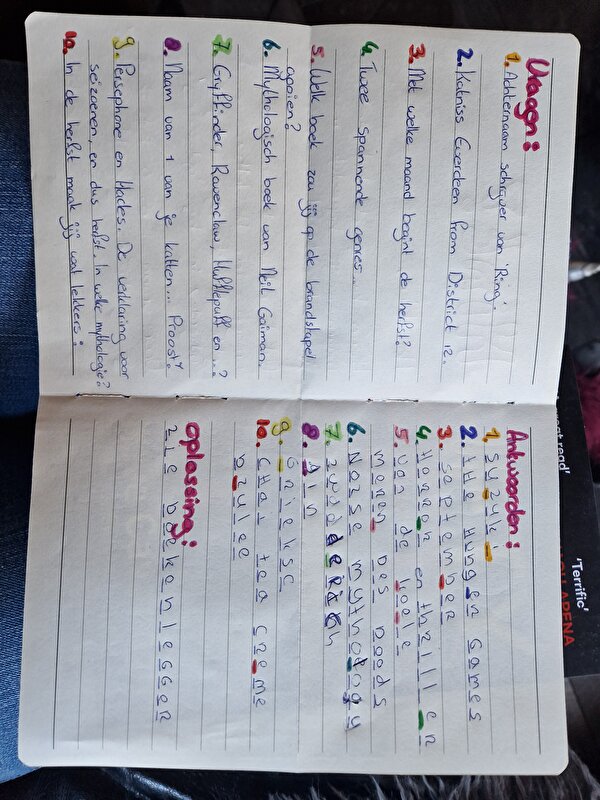 Vragen:
1. Achternaam schrijver van 'Ring'.
2. Katniss Everdeen from District 12.
3. Met welke maand begint de herfst?
4. Twee spannende genres...
5. Welk boek zou jij op de brandstapel
gooien?
6. Mythologisch boek van Neil Gaiman.
7. Gryffindor, Ravenclaw, Hufflepuff en ...?
8. Naam van 1 van je katten... Proost!
9. Persephone en Hades. De verklaring voor
seizoenen, en dus herfst. In welke mythologie?
10. In de herfst maak jij wat lekkers:
Antwoorden:
1. Suzuki
2. THE HUNGER GAMES
3. september
4. Horror en thriller
5. van de koele
meren des doods
6. Norse mythology
7. zwadderich
8. Gin
9. Griekse
10. CHai tea creme
brulee
oplossing:
zie boekenlegger
great read'
'Terrific'